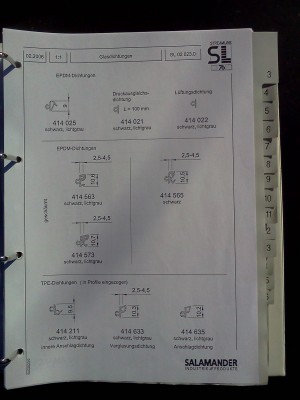 02.2006 1/1 Glasdichtungen SL 02 523.0
STREAMLINE
SL
76
EPDM-Dichtungen
Druckausgleichs-
dichtung
Lüftungsdichtung
L = 100 mm
414 025 414 021 414 022
schwarz, lichtgrau schwarz, lichtgrau schwarz, lichtgrau
EPDM-Dichtungen
2,5-4,5 2,5-4,5
414 563 414 565
schwarz, lichtgrau schwarz
2,5-4,5
10,7
414 573
schwarz, lichtgrau
TPE-Dichtungen (in Profile eingezogen)
2,5-4,5 2,5-4,5
9,5
414 211 414 633 414 635
schwarz, lichtgrau schwarz, lichtgrau schwarz, lichtgrau
innere Anschlagdichtung Verglasungsdichtung Anschlagdichtung
SALAMANDER
INDUSTRIE PRODUKTE
3
4
5
6
7
8
9
10
11
2
3